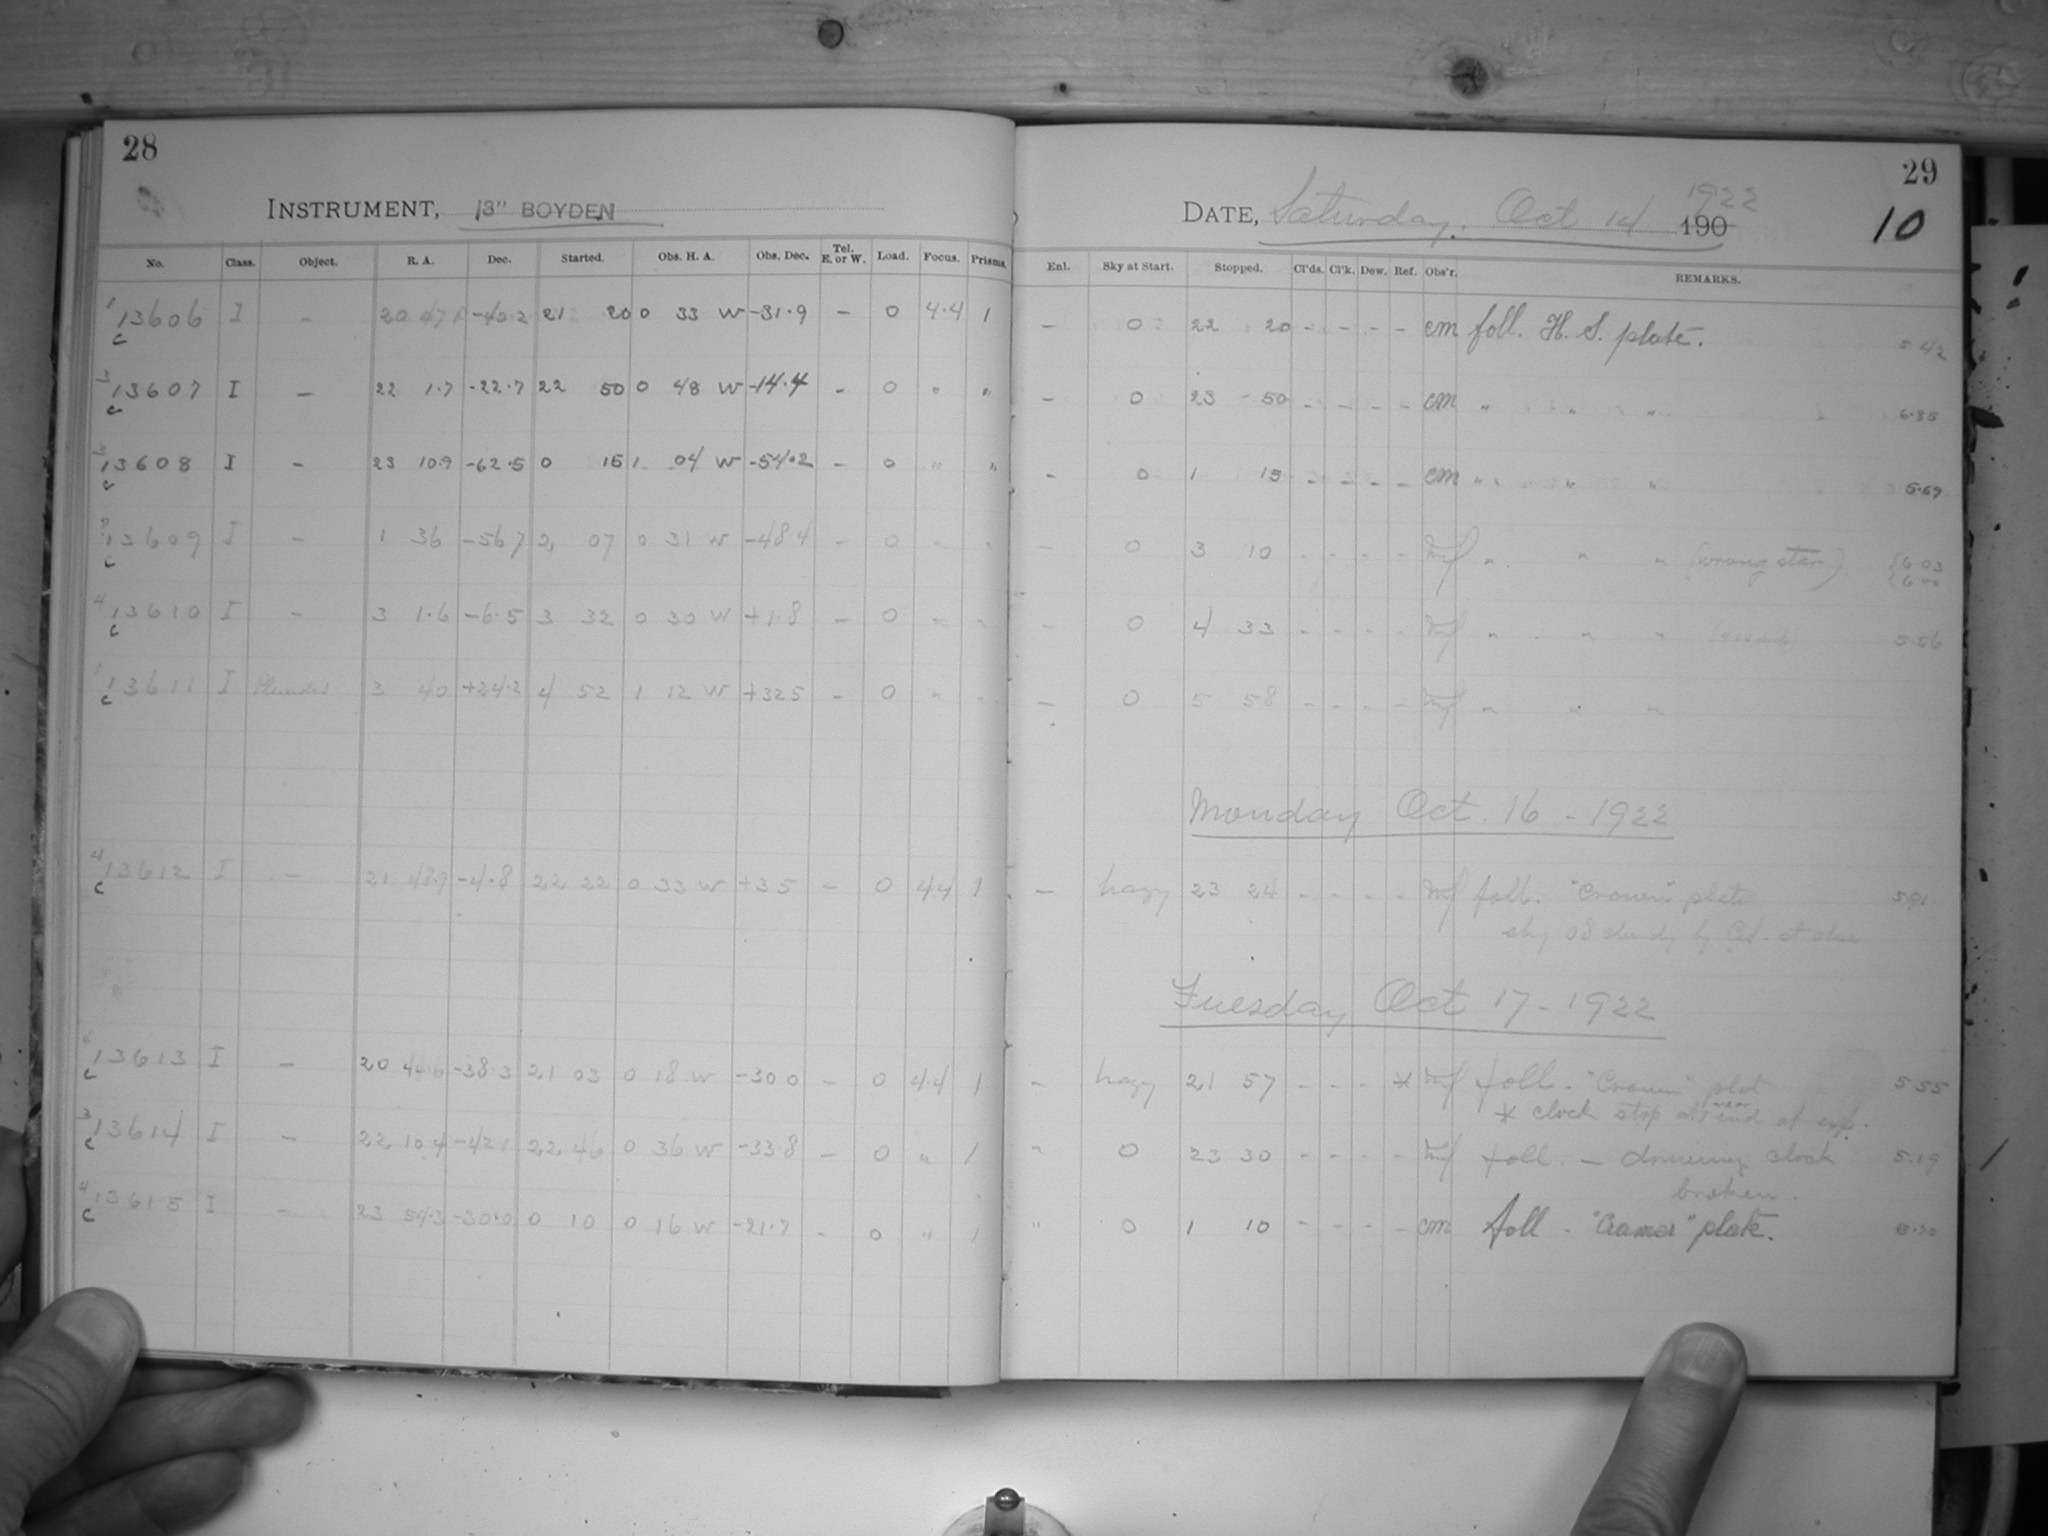 28
INSTRUMENT, 13" BOYDEN
No. Class. Object. R. A. Dec. Started. Obs. H. A. Obs. Dec. Tel. E. or W. Load. Focus. Prisms.
1 13606 I - 20 47.1 -40.2 21 20 0 33 W -31.9 - 0 4.4 1
c
3 13607 I - 22 1.7 -22.7 22 50 0 48 W -14.4 - 0 " "
c
3 13608 I - 23 10.9 -62.5 0 15 1 04 W -54.2 - 0 " "
c
13609 I - 1 36 -56 7 2 07 0 31 W -48 4 - 0 " "
c
4 13610 I - 3 1.6 -6.5 3 32 0 30 W +1.8 - 0 " "
c
1 13611 I 3 40 +24.2 4 52 1 12 W +32 5 - 0 " "
c
4 13612 I - 21 48.9 -4.8 22 22 0 33 W +3 5 - 0 4.4 1
c
4 13613 I - 20 44.6 -38.3 21 03 0 18 W -30 0 - 0 4.4 1
c
3 13614 I - 22 10.4 -42 1 22 46 0 36 W -33.8 - 0 " 1
c
4 13615 I - 23 54.3 -30.0 0 10 0 16 W -21.7 - 0 " 1
c
29
DATE, Saturday, Oct 14 190 1922
10
Enl. Sky at Start. Stopped. Cl'ds. Cl'k. Dew. Ref. Obs'r. REMARKS.
- 0 22 20 - - - - cm foll. H. S. plate. 5.42
- 0 23 50 - - - - cm " " " 6.35
- 0 1 15 - - - - cm " " " 5.69
- 0 3 10 - - - - " " " (wrong star) 6.03
6.00
- 0 4 33 - - - - " " " 5.56
- 0 5 58 - - - - " " "
Monday Oct. 16 - 1922
- hazy 23 24 - - - - foll. "Cramer" plate 5.91
Tuesday Oct 17 - 1922
- hazy 21 57 - - - * foll. "Cramer" plate 5.55
* clock stop at near end of exp.
" 0 23 30 - - - - foll. - driving clock 5.19
broken.
" 0 1 10 - - - - cm foll - "Cramer" plate.